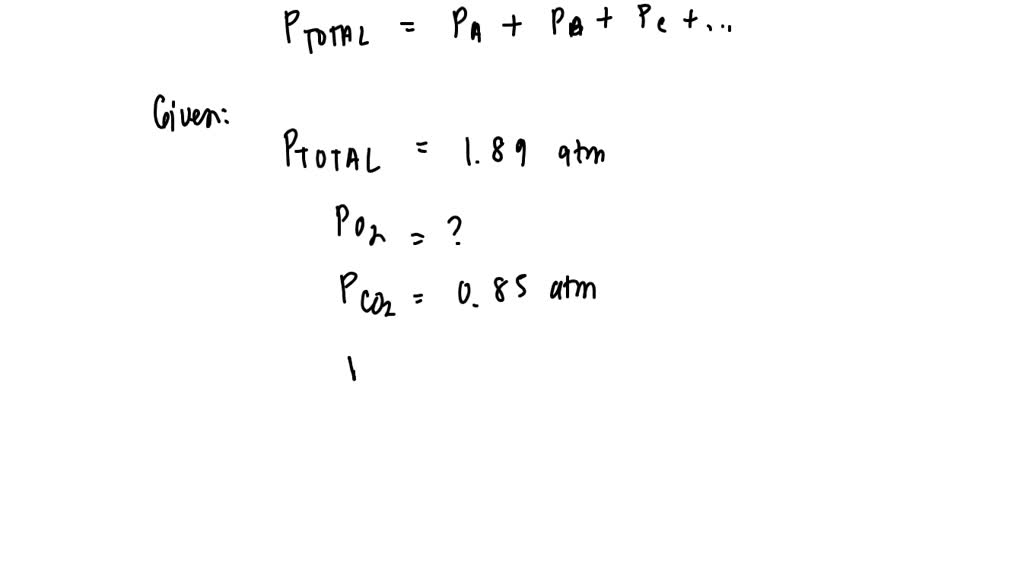 P TOTAL = P A + P B + P C + ...
Given:
P TOTAL = 1.89 atm
P O2 = ?
P CO2 = 0.85 atm